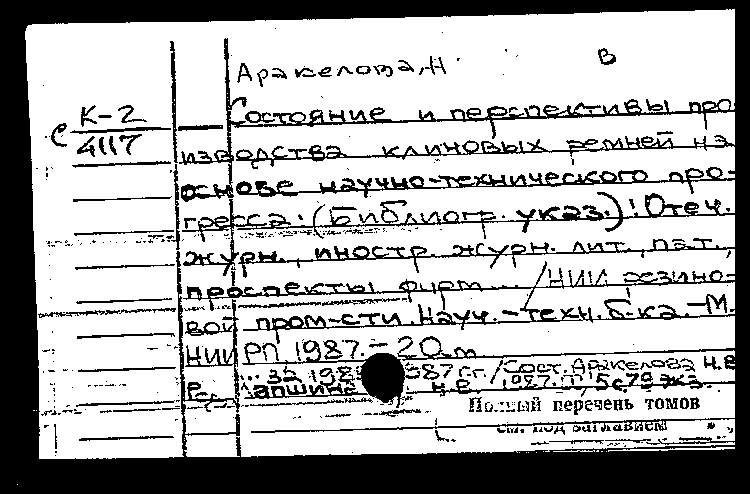 Аракелова, Н
В
К-2
С
4117
Состояние и перспективы про
изводства клиновых ремней на
основе научно-технического про-
гресса: (Библиогр. указ.): Отеч.
журн., иностр. журн. лит., пат.,
проспекты фирм... / НИИ резино-
вой пром-сти. Науч.-техн. б-ка. - М.
НИИРП, 1987. - 20 т.
/Сост. Аракелова Н.В
Лапшина Н.В. 1987.
Полный перечень томов
см. под заглавием